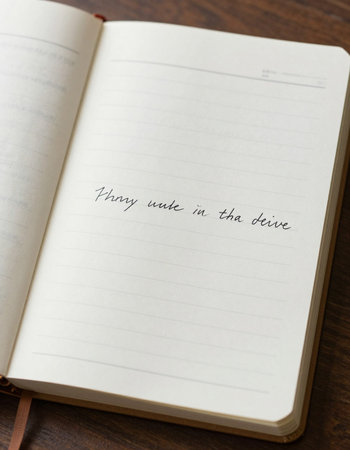 Thny wule in tha deive